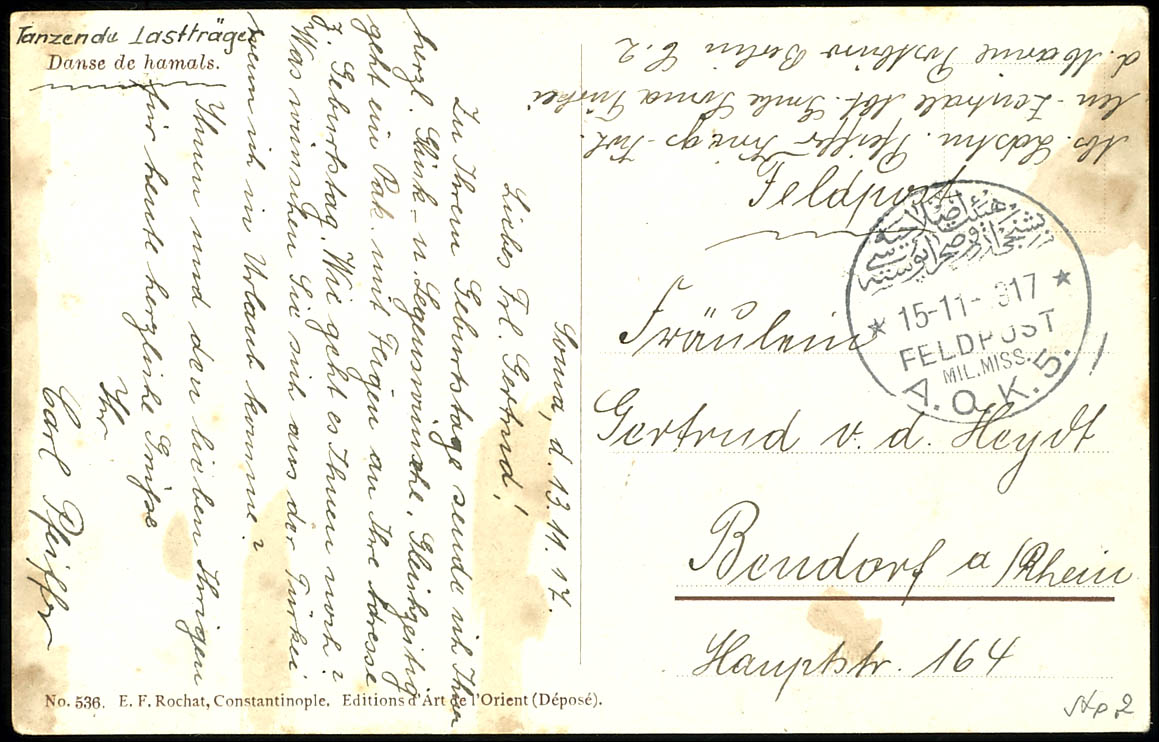 Tanzende Lastträger
Danse de hamals.
Soma, d. 13.11.17.
Liebes Frl. Gertrud!
Zu Ihrem Geburtstage sende ich Ihnen
herzl. Glück- u. Segenswünsche. Gleichzeitig
geht ein Pak. mit Feigen an Ihre Adresse
z. Geburtstag. Wie geht es Ihnen noch?
Was wünschen Sie sich aus der Türkei
wenn ich in Urlaub komme?
Ihnen und den lieben Ihrigen
für heute herzliche Grüsse
Ihr
Carl Pfeiffer
No. 536. E. F. Rochat, Constantinople. Editions d'Art de l'Orient (Déposé).
Abs. Ldstm. Pfeiffer Kriegs-
len-Zentrale Abt. Soma Türkei
d. Marine Postbüro Berlin C.2
Feldpost
15-11-917
FELDPOST
MIL.MISS.
A.O.K.5.
Fräulein
Gertrud v. d. Heydt
Bendorf a/Rhein
Hauptstr. 164